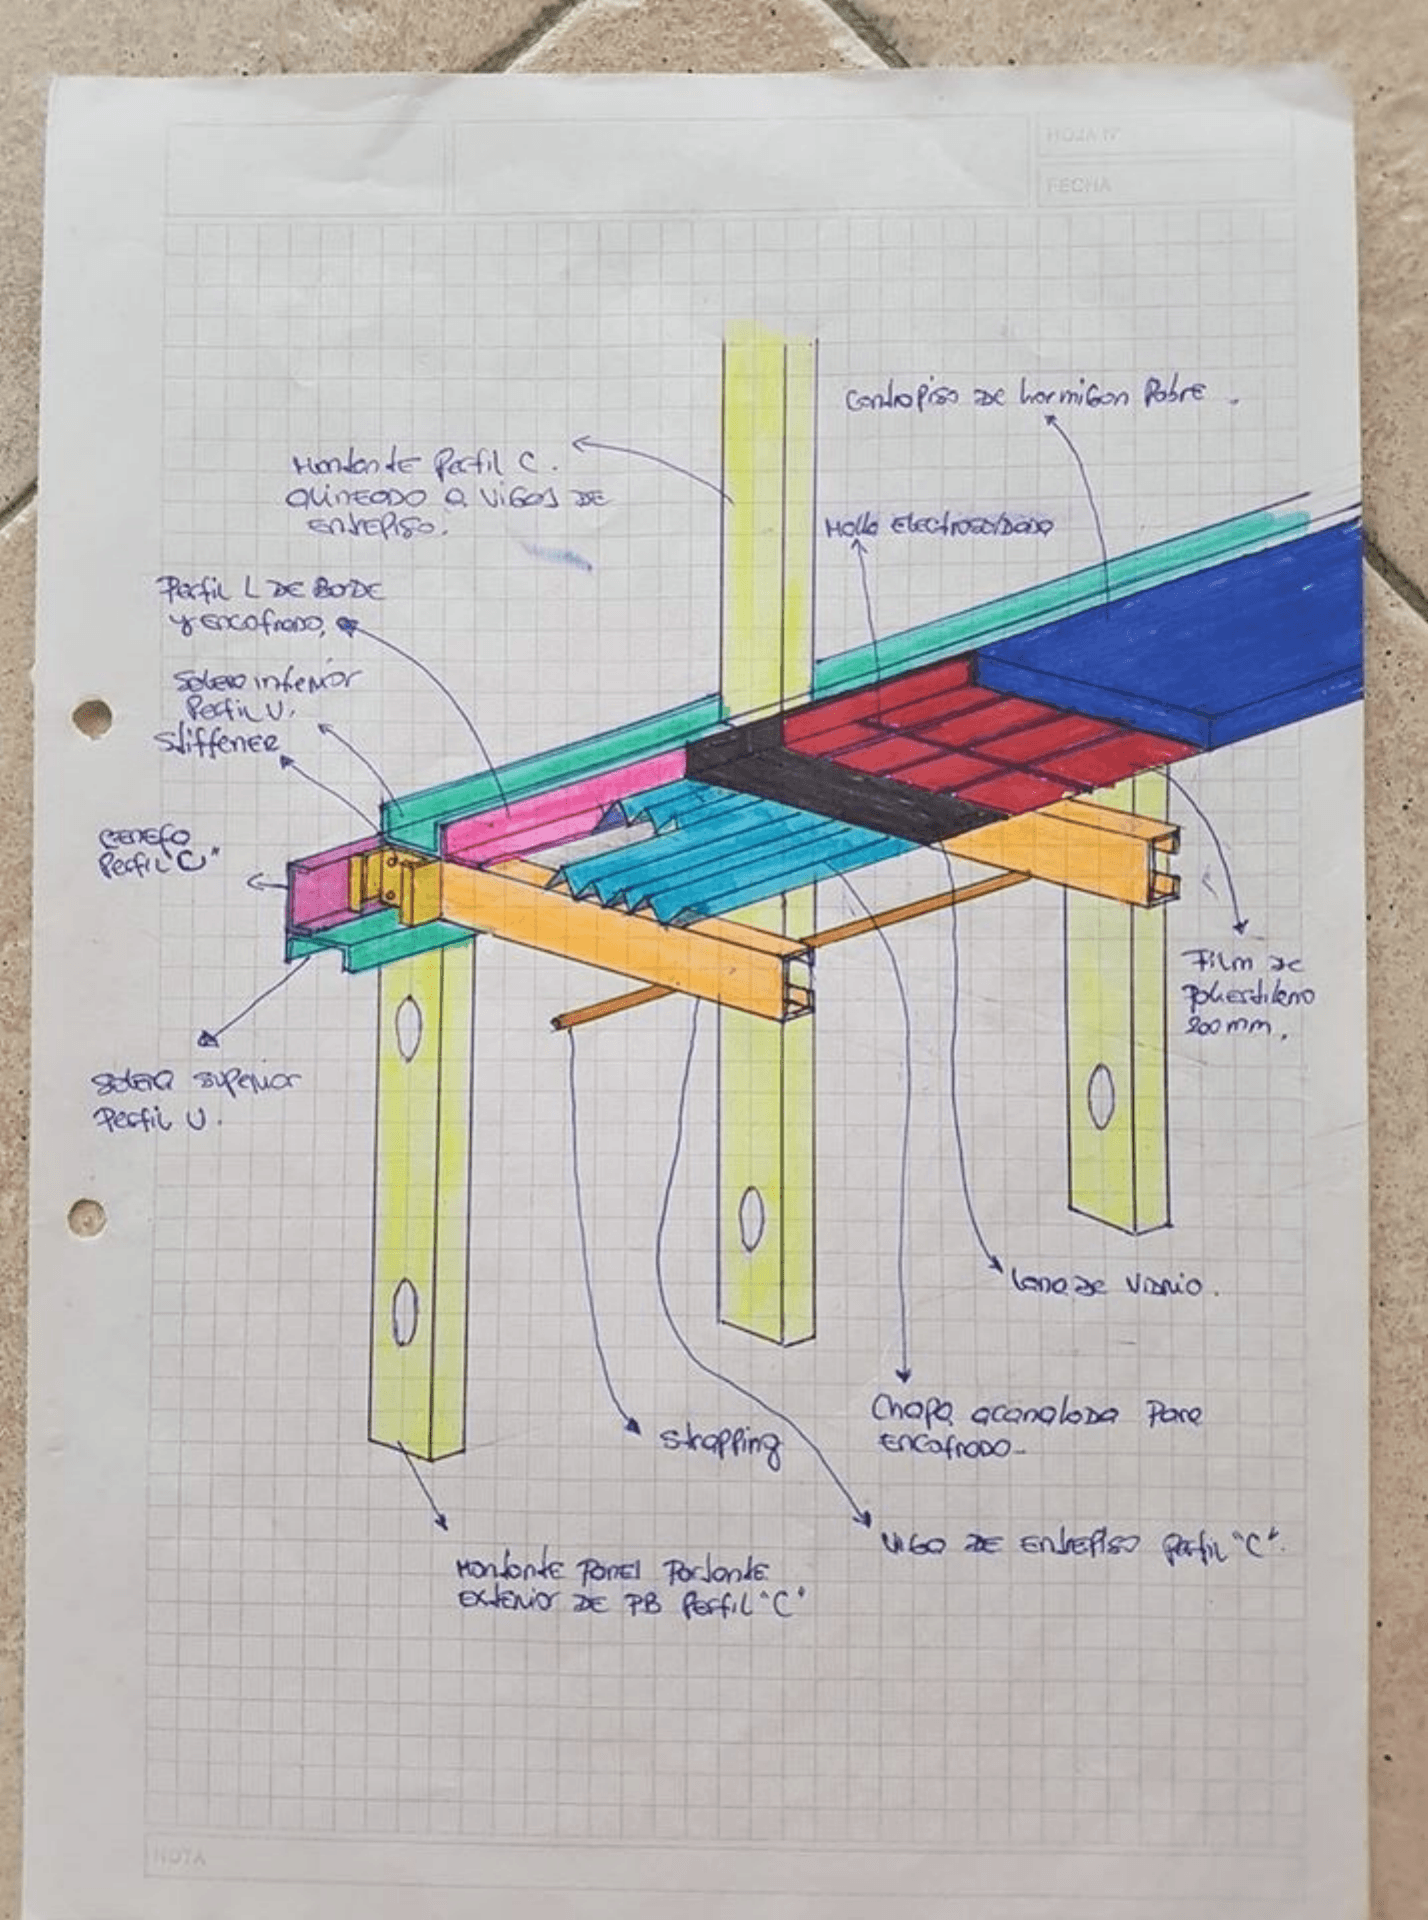 HOJA N°
FECHA
Contrapiso DE hormigon Pobre.
Montante Perfil C.
alineado a vigas DE
Entrepiso.
Malla Electrosoldada
Perfil L DE BORDE
y encofrado.
Solera inferior
Perfil U.
Stiffener
Cenefa
Perfil "C"
Film de
Polietileno
200 mm.
Solera superior
Perfil U.
Lana de Vidrio.
Chapa acanalada Para
Encofrado.
Strapping
Viga DE Entrepiso Perfil "C".
Montante Panel Portante
Exterior DE PB Perfil "C"
NOTA